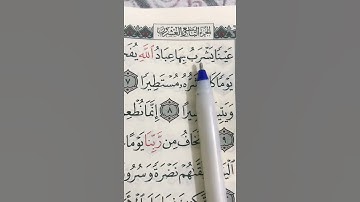 الجزء التاسع والعشرون
عَيْنًا يَشْرَبُ بِهَا عِبَادُ اللَّهِ يُفَ
يَوْمًا كَا رُّهُ مُسْتَطِيرًا ٧
وَيَتِي يرًا ٨ إِنَّمَا نُطْعِ
٩ خَافُ مِن رَّبِّنَا يَوْمًا
الْيَ قَّىٰهُمْ نَضْرَةً وَسُرُو